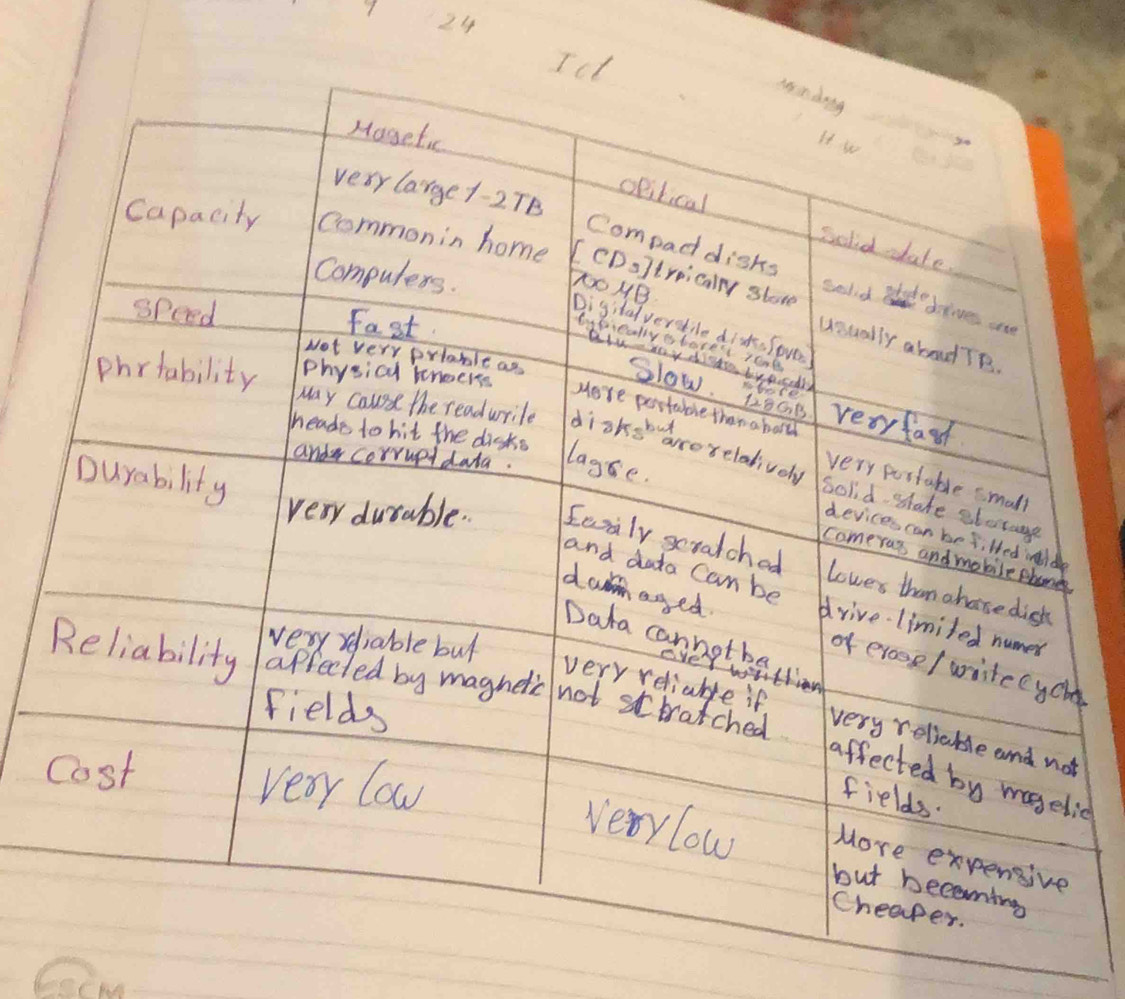 24
Ict
H.W
Magetic
Opitical
Solid state.
Capacity
very large 1-2TB
Common in home
Computers.
Compact disks
[CDs] typically store
700 MB.
Digital versatile disks [DVDs]
typically store
Blu-ray disks typically
store
128 GB.
Solid state drives are
usually about TB.
Speed
Fast.
Slow.
very fast.
Phrtability
Not very prtable as
physical knocks
May cause the read write
heads to hit the disks
and corrupt data.
More portable than a hard
disks but are relatively
lagre.
very portable small
Solid-state storage
devices can be fitted inside
cameras and mobile phones
Durability
very durable..
Easily scratched
and data can be
damaged.
Data cannot be
over writtien
Lower than a disk
drive. limited numer
of erase/write cycles
Reliability
very reliable but
affected by magnetic
fields
very reliable if
not scratched
very reliable and not
affected by magetic
fields.
Cost
very low
very low
More expensive
but becoming
Cheaper.
SCM